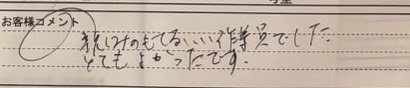 お客様コメント
親しみのもてるいい作業員でした
とてもよかったです。